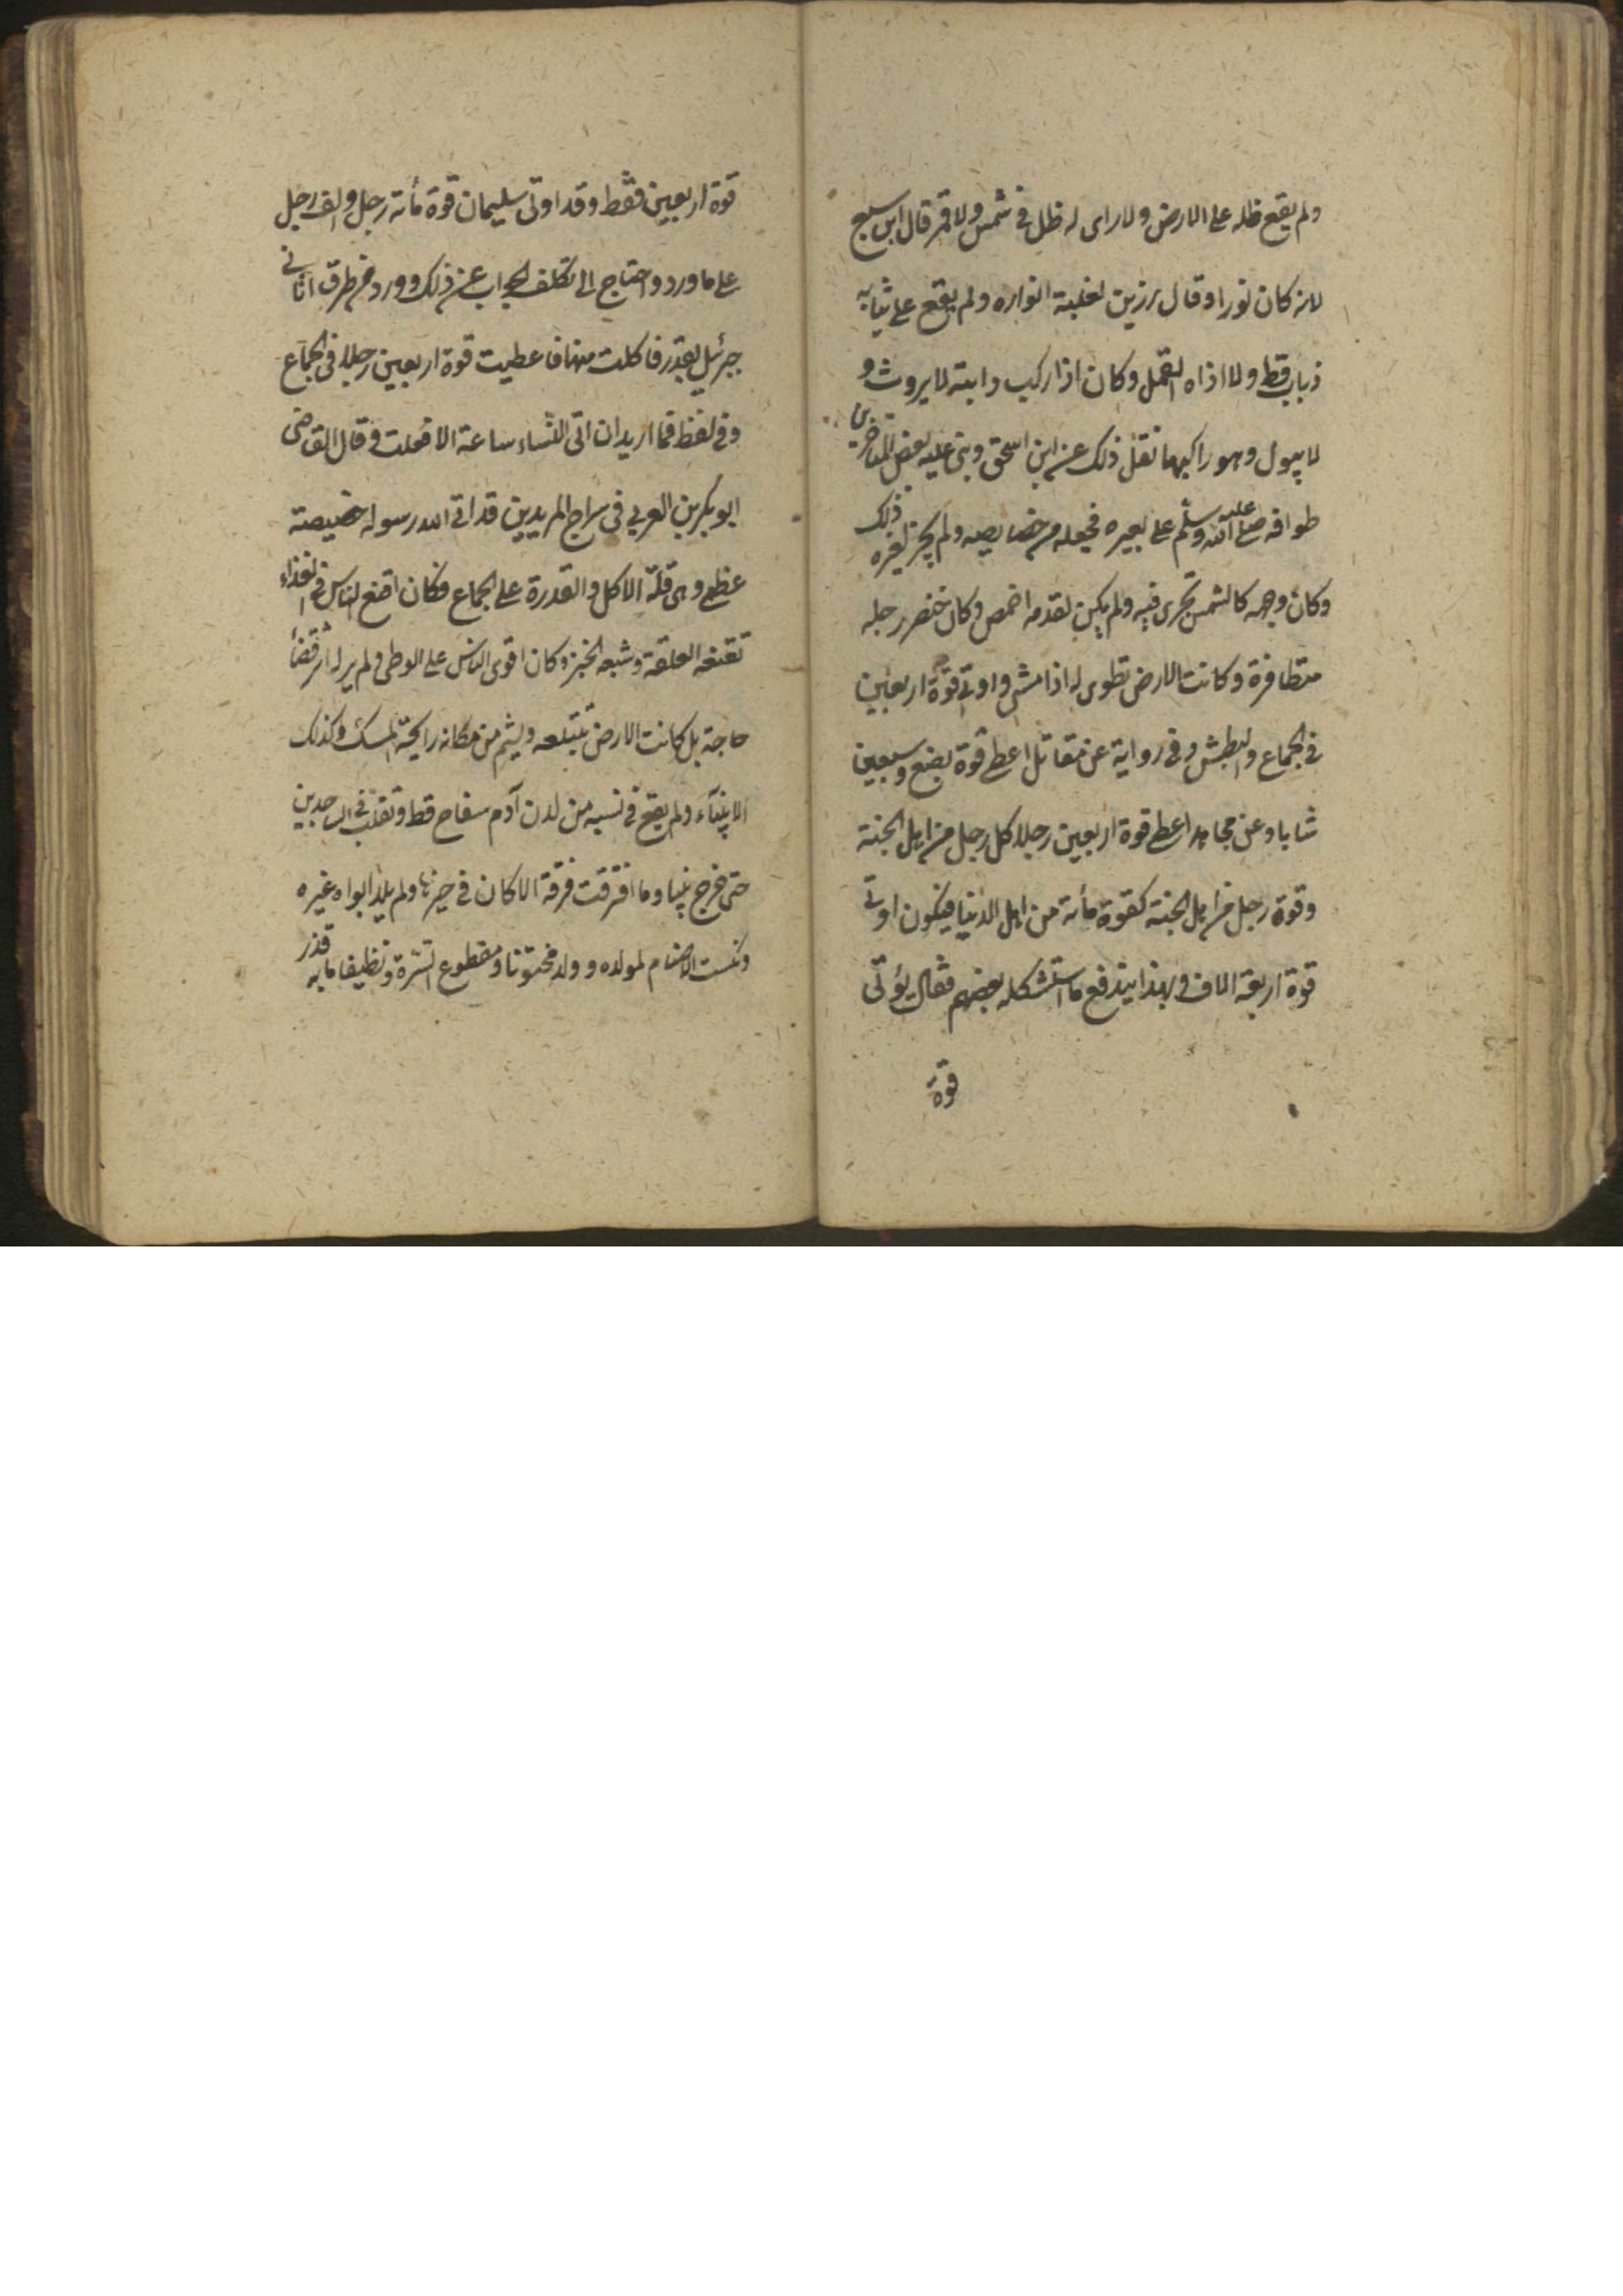 ولم يقع ظله على الارض ولا راى له ظل فى شمس ولا قمر قال ابن سبع
لانه كان نورا وقال رزين لغلبة انواره ولم يقع على ثيابه
ذباب قط ولا اذاه القمل وكان اذا ركب دابة لا يروث و
لا يبول وهو راكبها نقل ذلك عن ابن اسحق وبنى عليه بعض المتاخرين
طوافه صلى الله عليه وسلم على بعيره فجعله من خصايصه ولم يجز لغيره ذلك
وكان وجهه كالشمس تجرى فيه ولم يكن لقدمه اخمص وكان خنصر رجله
متظافرة وكانت الارض تطوى له اذا مشى واوتى قوة اربعين
فى الجماع والبطش وفى رواية عن مقاتل اعطى قوة بضع وسبعين
شابا وعن مجاهد اعطى قوة اربعين رجلا كل رجل من اهل الجنة
وقوة رجل من اهل الجنة كقوة مأئة من اهل الدنيا فيكون اوتى
قوة اربعة الاف وبهذا يندفع ما استشكله بعضهم فقال يؤتى
قوة
قوة اربعين فقط وقد اوتى سليمان قوة مأنة رجل والف رجل
على ما ورد واحتاج الى تكلف الجواب عن ذلك وورد من طرق اتانى
جبرئيل بقدر فاكلت منها فاعطيت قوة اربعين رجلا فى الجماع
وفى لفظ فما اريد ان اتى النساء ساعة الا فعلت وقال القاضى
ابو بكر بن العربي فى سراج المريدين قد اتى الله رسوله خصيصة
عظمى وهى قلة الاكل والقدرة على الجماع فكان اقنع الناس فى الغذاء
تقنعه العلقة وشبعه الخبز وكان اقوى الناس على الوطى ولم ير له اثر قضأ
حاجة بل كانت الارض تبتلعه ويشم من مكانه رايحة المسك وكذلك
الانبيآء ولم يقع فى نسبه من لدن آدم سفاح قط وتقلب فى الساجدين
حتى خرج نبيا وما افترقت فرقة الا كان فى خيرها ولم يلد ابواه غيره
ونكست الاصنام لمولده وولد مختونا ومقطوع السرة ونظيفا ما به قذر